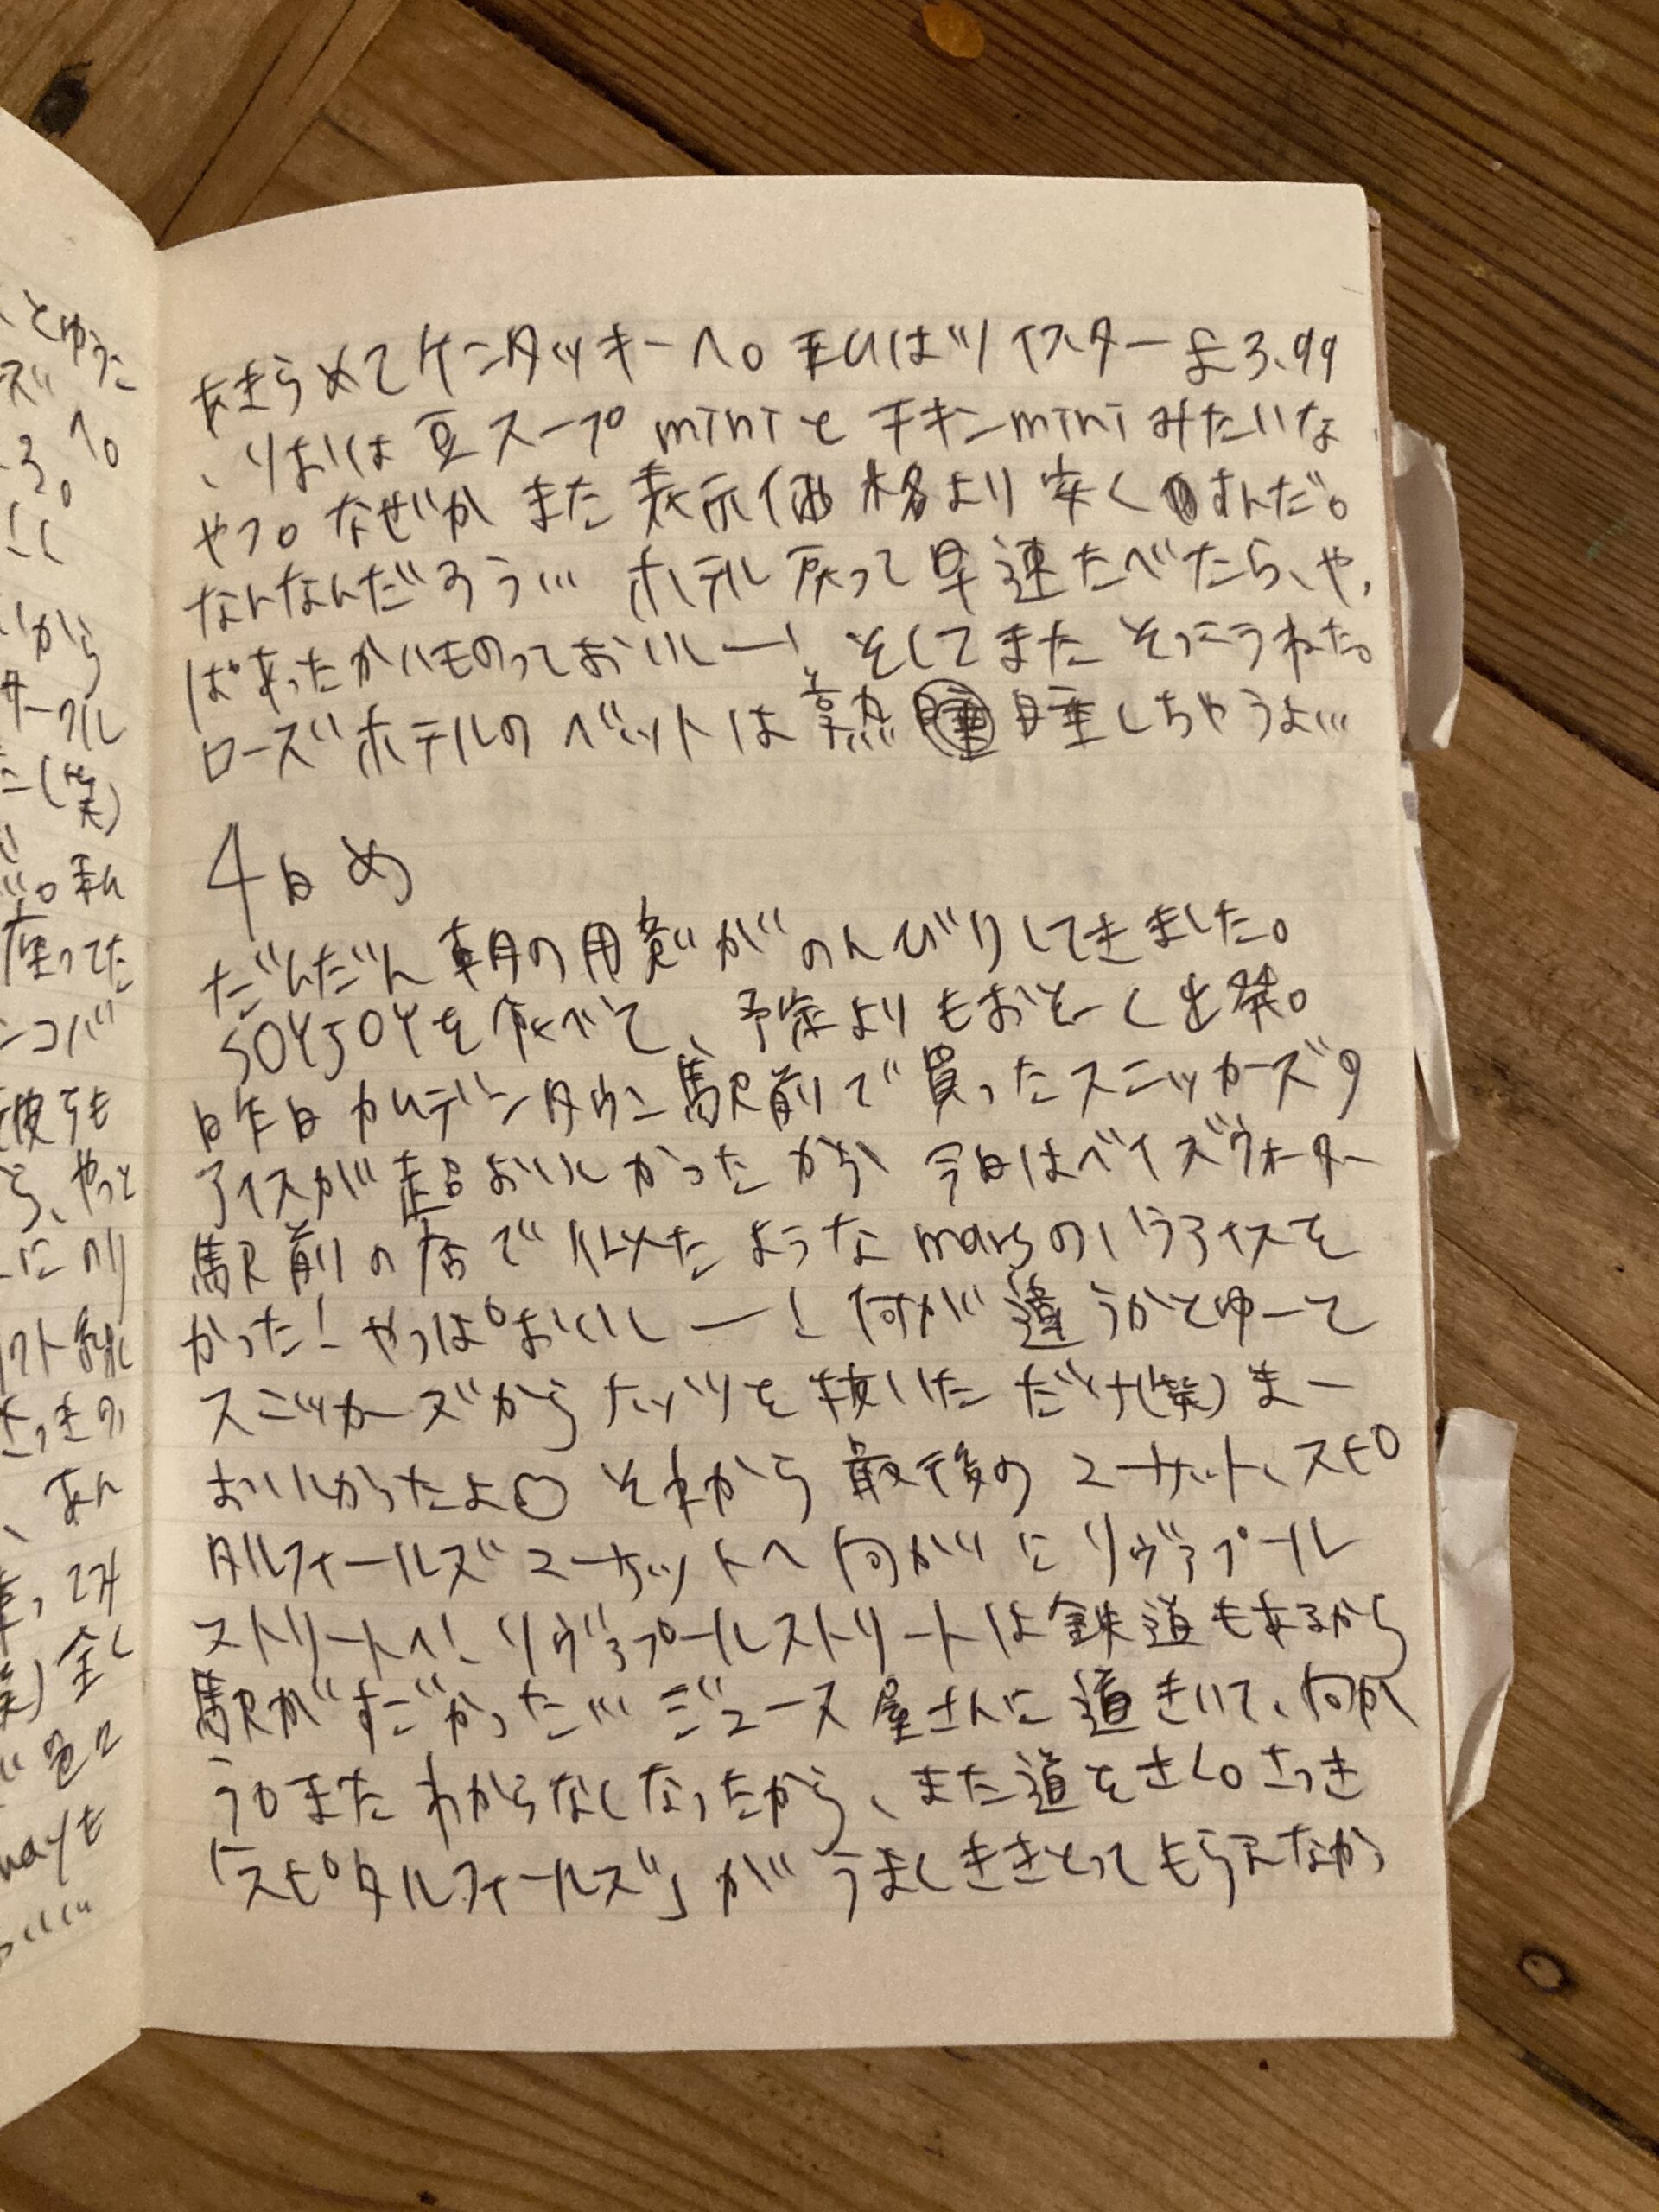 とゆうこ
ズ
る。へ
から
タークル
に(笑)
。私
座ってた
ンコバ
彼らも
ら、やっと
にのり
さっきの
、あん
全く
色々
wayも
あきらめてケンタッキーへ。私はツイスター£3.99
、りおいは豆スープminiとチキンminiみたいな
やつ。なぜかまた表示価格より安くすんだ。
なんなんだろう… ホテル戻って早速たべたら、やっ
ぱあったかいものっておいしー!そしてまたそっこうねた。
ローズホテルのベットは熟睡しちゃうよ…
4日め
だんだん朝の用意がのんびりしてきました。
SOYJOYを食べて、予定よりもおそーく出発。
昨日カムデンタウン駅前で買ったスニッカーズの
アイスが超おいしかったから今日はベイズウォーター
駅前の店で似たようなmarsのバーアイスを
かった!やっぱおいしー!何が違うかとゆーと
スニッカーズからナッツを抜いただけ(笑)まー
おいしかったよ♡ それから最後のマーケット、スピ
タルフィールズマーケットへ向かいにリヴァプール
ストリートへ!リヴァプールストリートは鉄道もあるから
駅がすごかった… ジュース屋さんに道きいて、向か
うもまたわからなくなったから、また道をきく。さっき
「スピタルフィールズ」がうまくききとってもらえなかっ